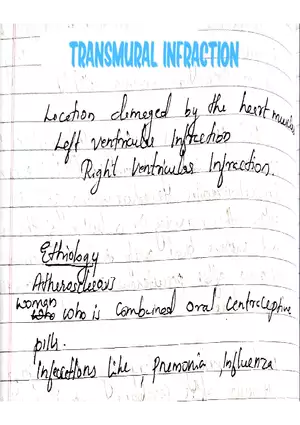 TRANSMURAL INFRACTION
Location demeged by the heart muscles
Left ventricular Infraction
Right Ventricular Infraction.
Ethiology
Atherosclerosis
woman who is combained oral centraceptive
pills.
Infections like , Pnemonia , Influenza